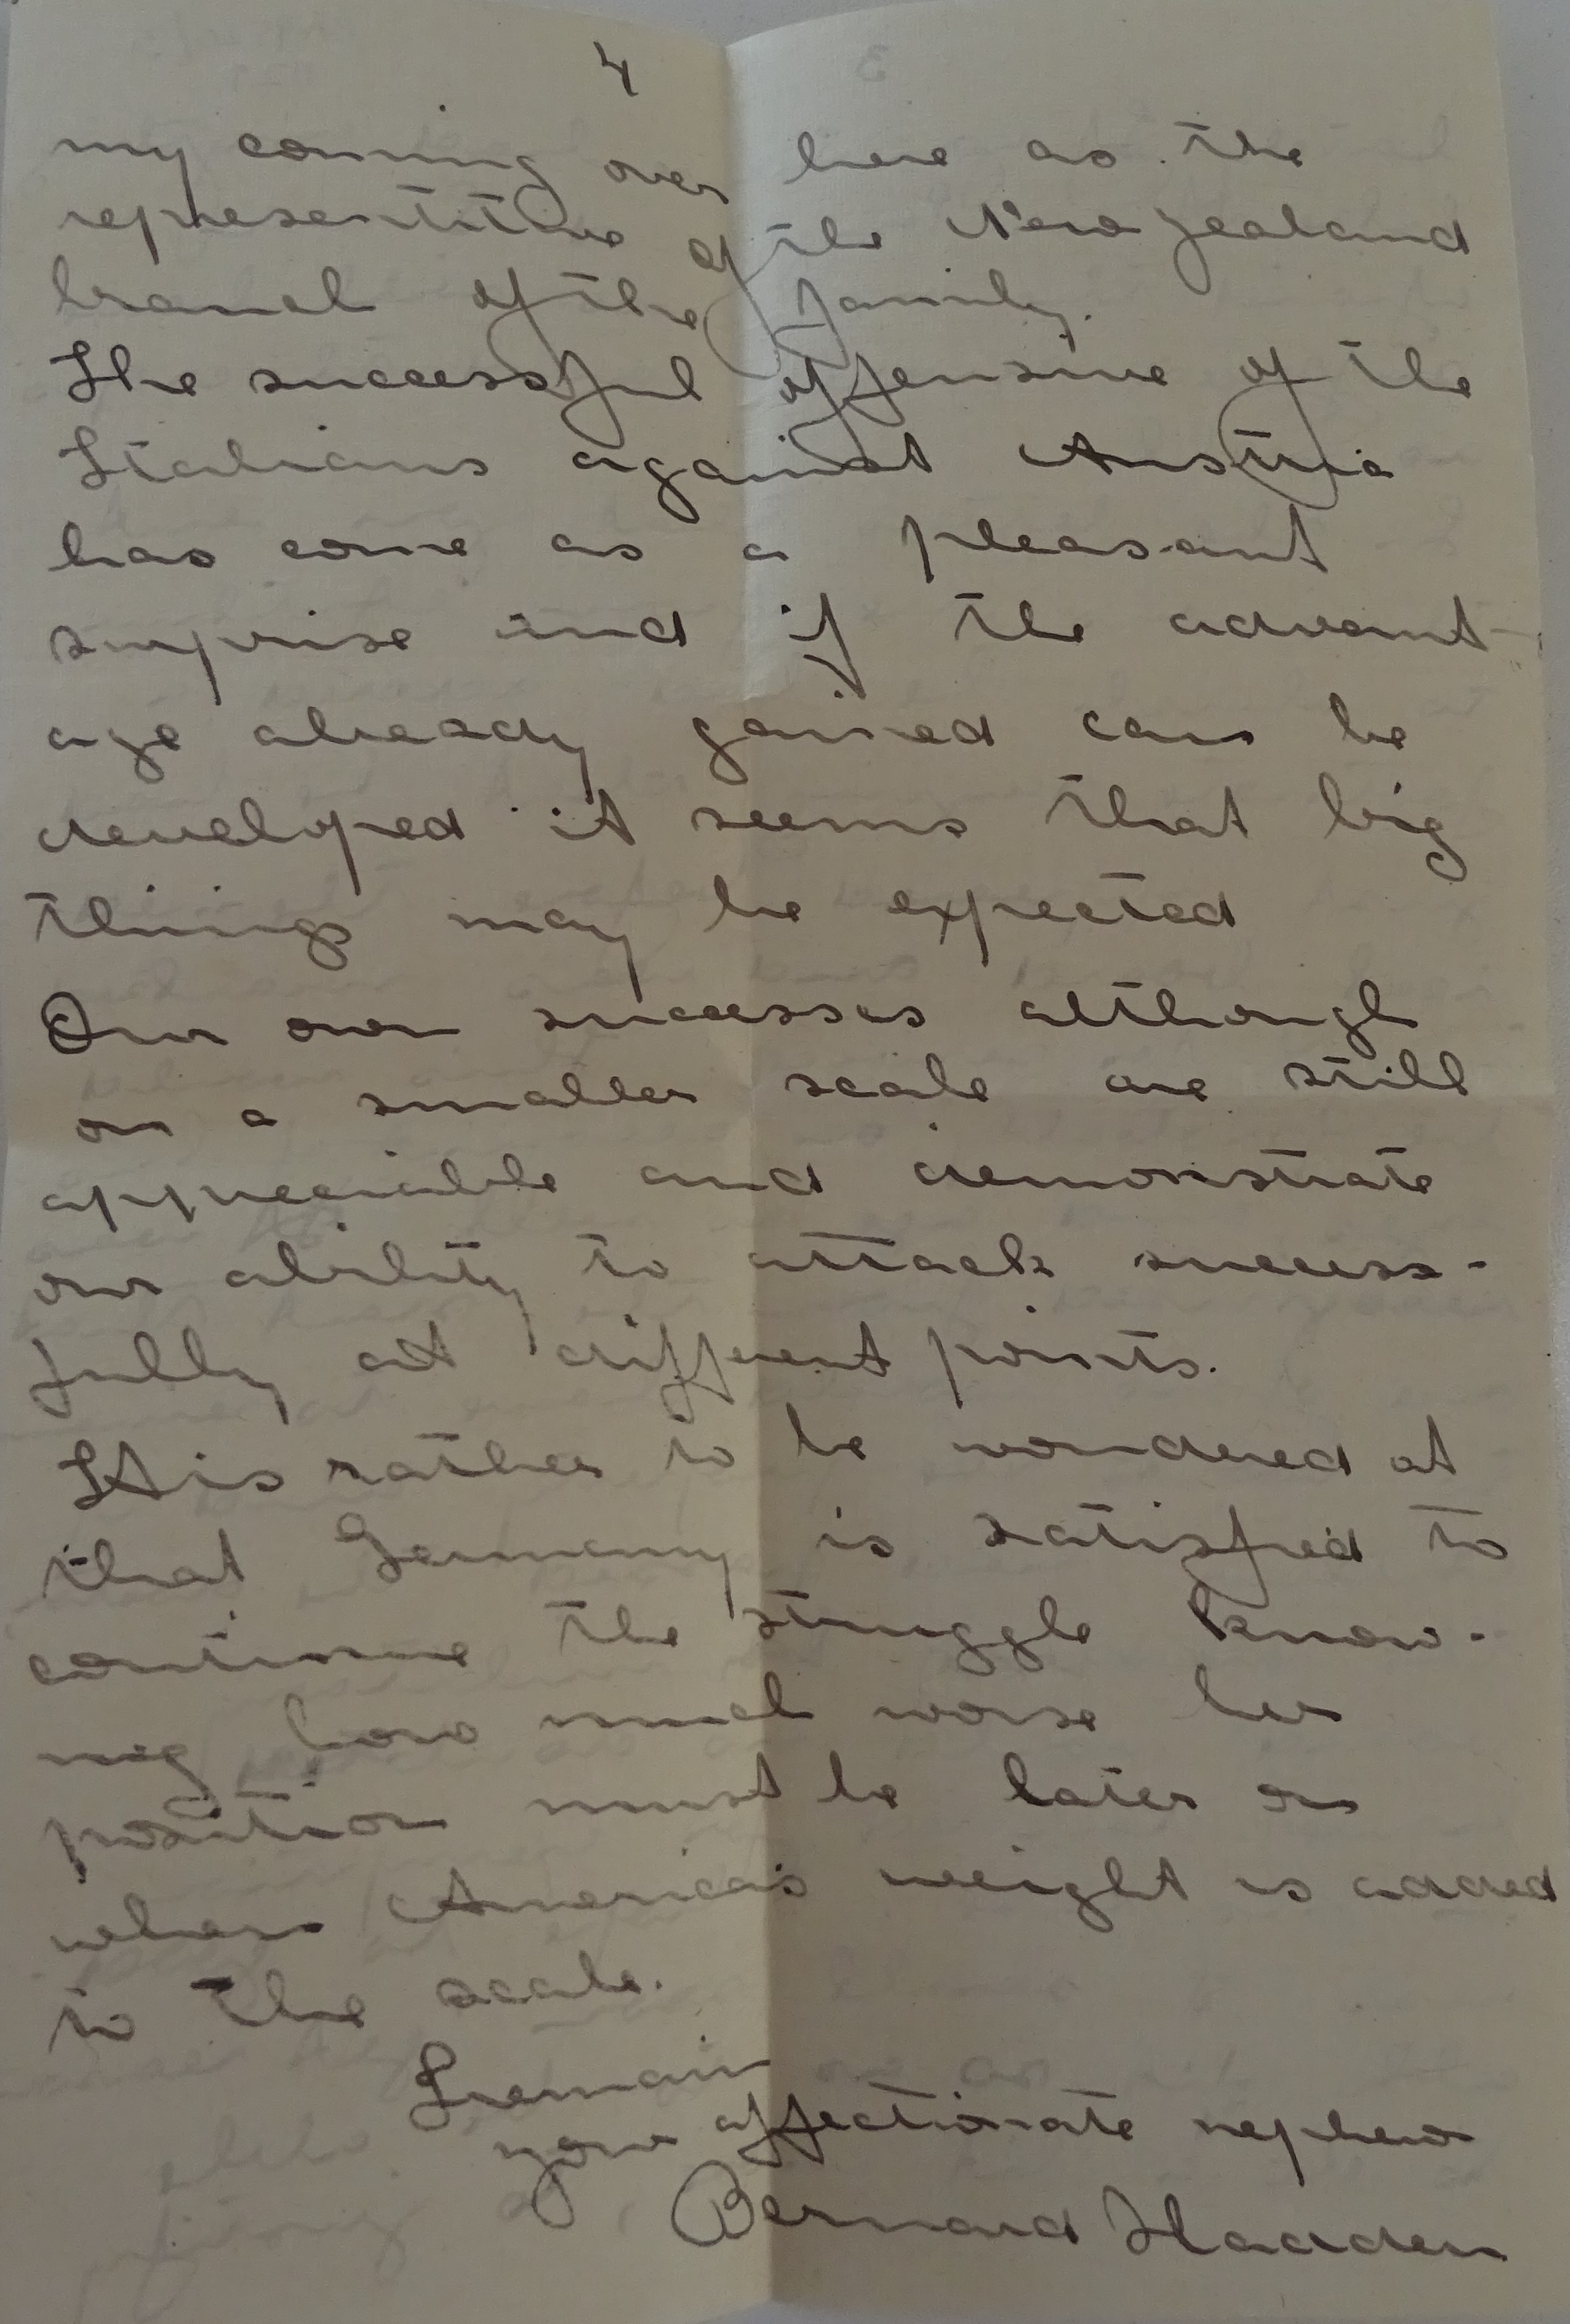 4
my coming over here as the
representitive of the New Zealand
branch of the family.
The successful offensive of the
Italians against Austria
has come as a pleasant
surprise and if the advant-
age already gained can be
developed it seems that big
things may be expected
Our own successes although
on a smaller scale are still
appreciable and demonstrate
our ability to attack success-
fully at different points.
It is rather to be wondered at
that Germany is satisfied to
continue the struggle know-
ing how much worse her
position must be later on
when America's weight is added
to the scale.
I remain
your affectionate nephew
Bernard Hadden